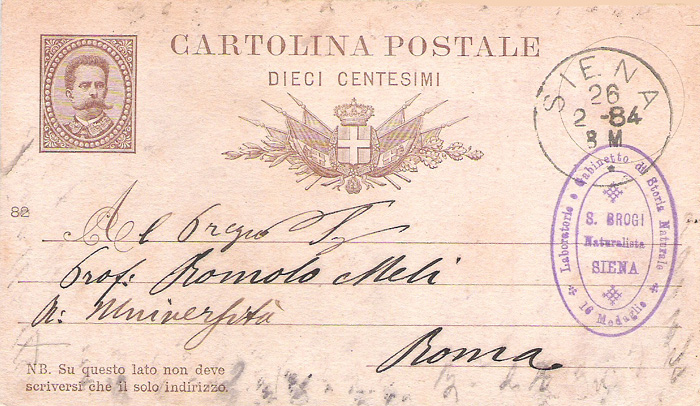 CARTOLINA POSTALE
DIECI CENTESIMI
SIENA
26
2 -84
8 M
Laboratorio e Gabinetto di Storia Naturale
S. BROGI
Naturalista
SIENA
16 Medaglie
82
Al Pregio Sg
Prof: Romolo Meli
R: Università
Roma
NB. Su questo lato non deve
scriversi che il solo indirizzo.